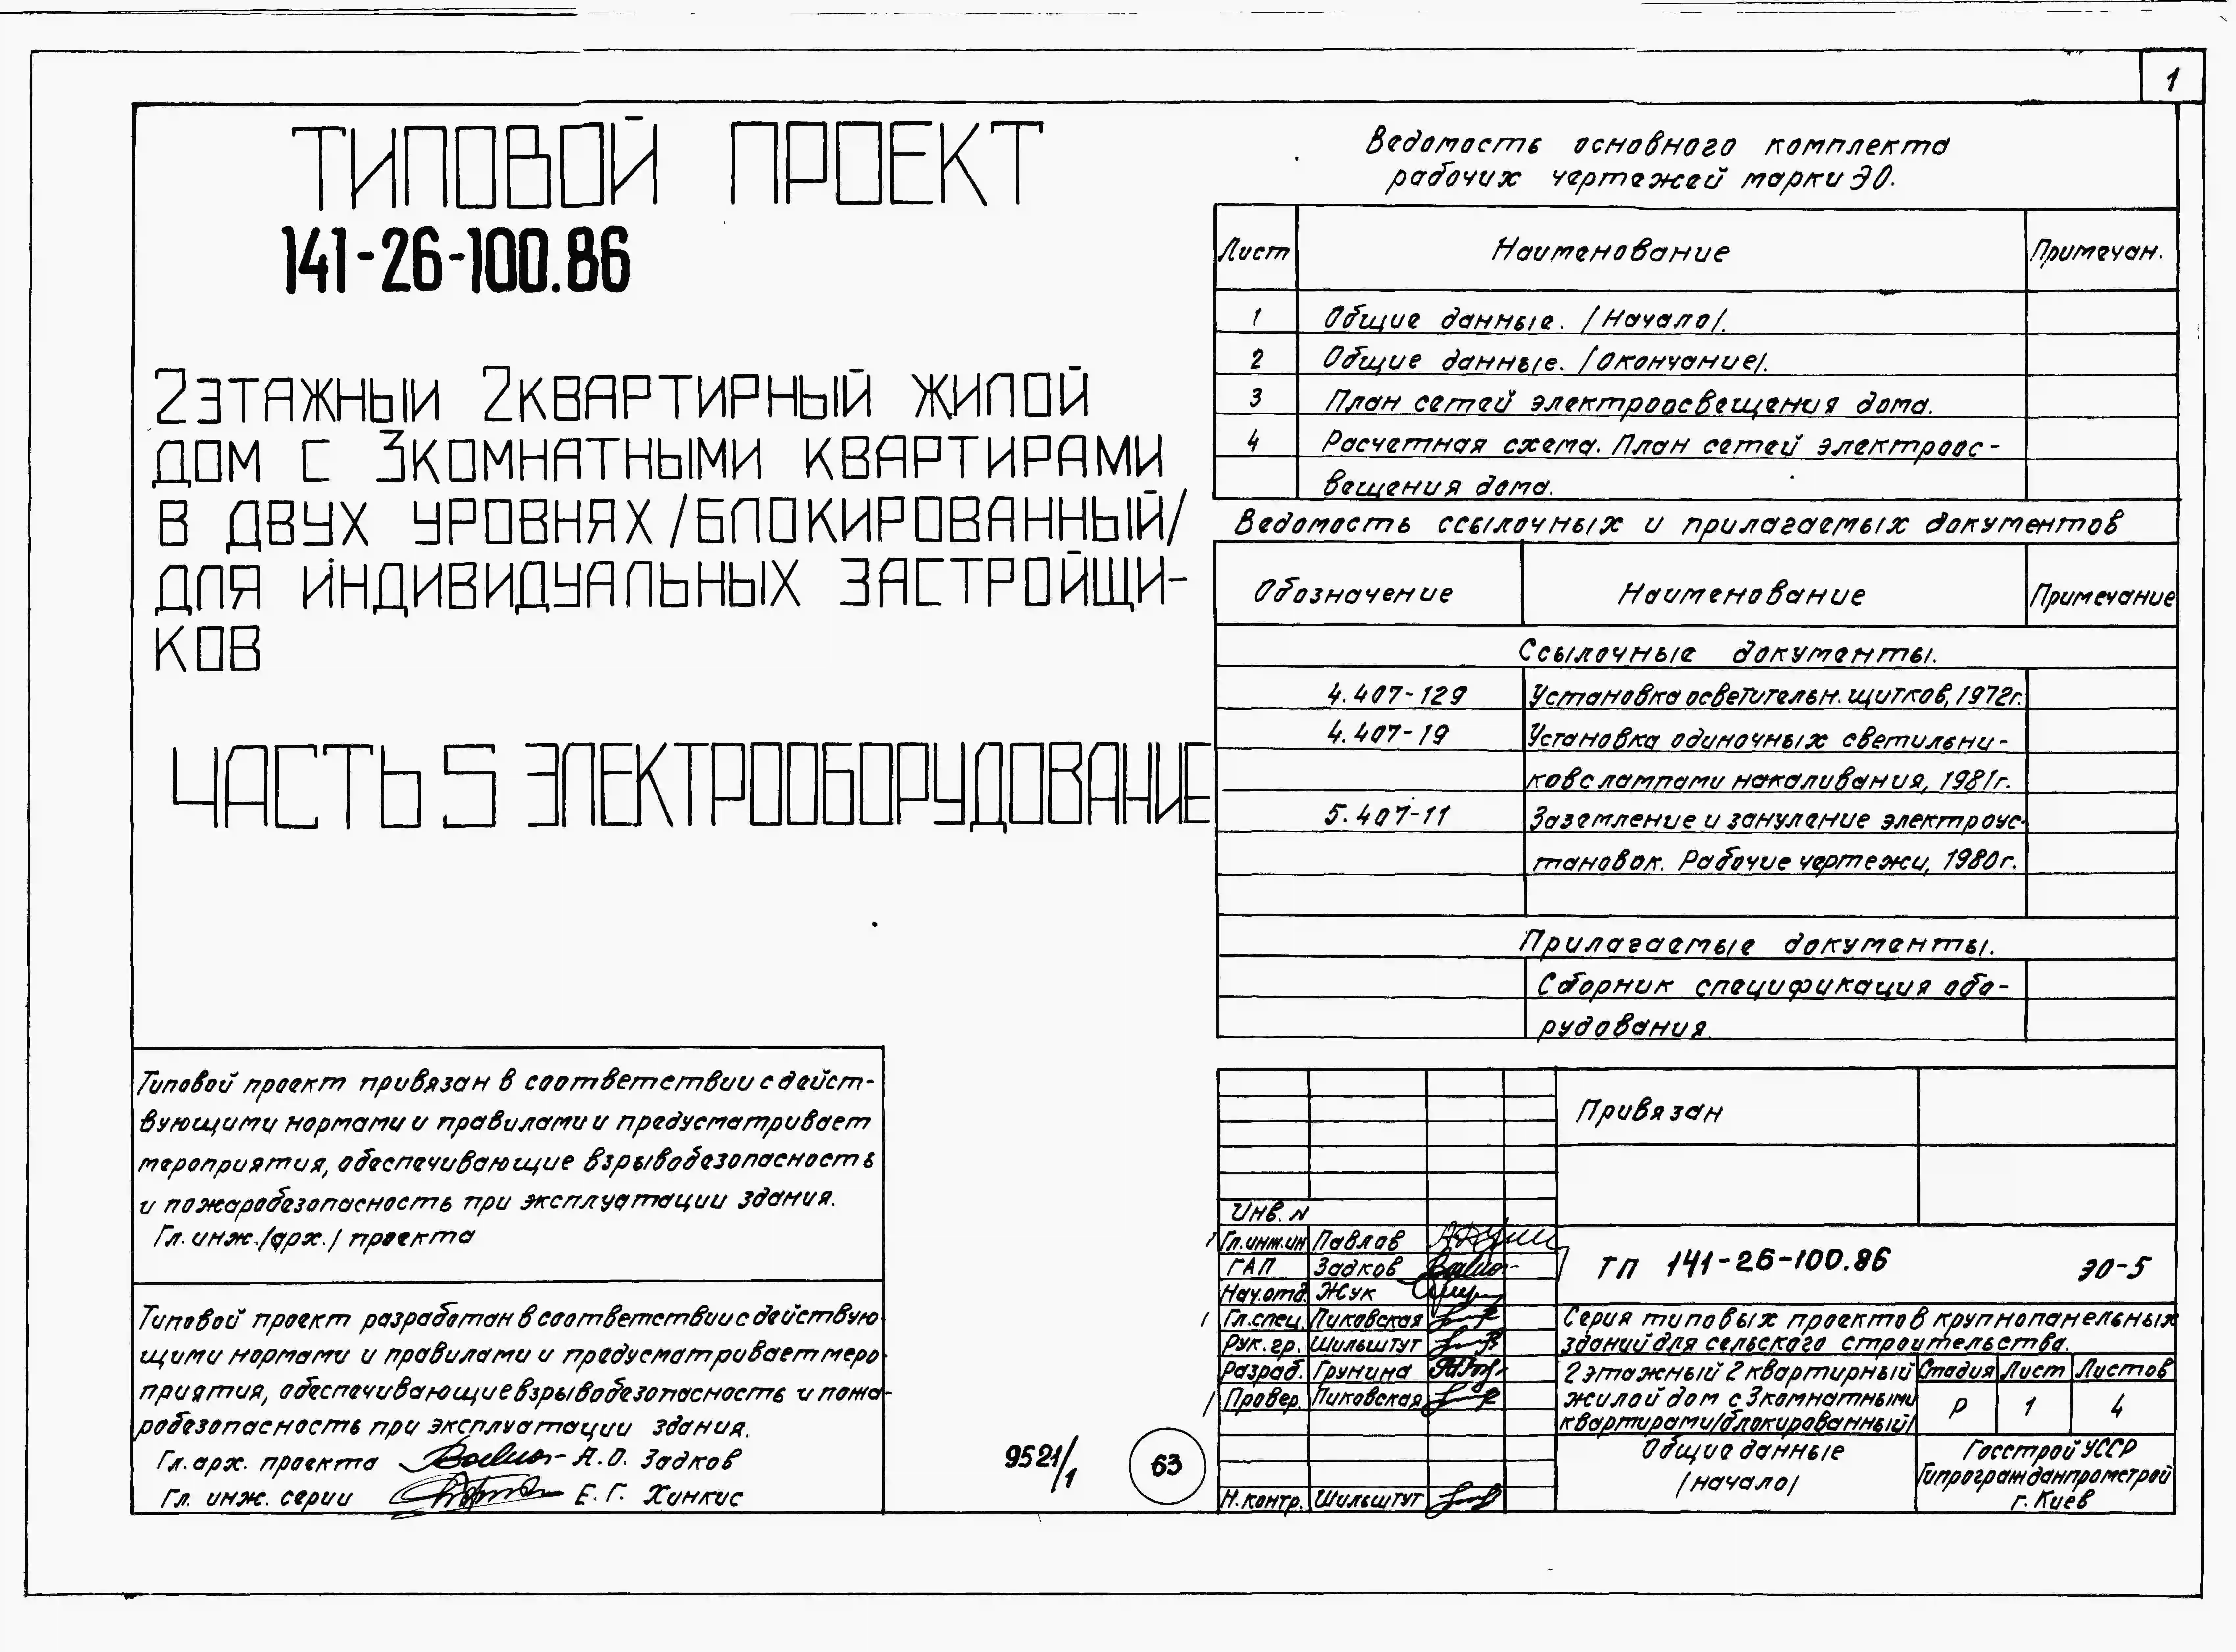 1
ТИПОВОЙ ПРОЕКТ
141-26-100.86
2ЭТАЖНЫЙ 2КВАРТИРНЫЙ ЖИЛОЙ
ДОМ С 3КОМНАТНЫМИ КВАРТИРАМИ
В ДВУХ УРОВНЯХ/БЛОКИРОВАННЫЙ/
ДЛЯ ИНДИВИДУАЛЬНЫХ ЗАСТРОЙЩИ-
КОВ
ЧАСТЬ 5 ЭЛЕКТРООБОРУДОВАНИЕ
Типовой проект привязан в соответствии с дейст-
вующими нормами и правилами и предусматривает
мероприятия, обеспечивающие взрывобезопасность
и пожаробезопасность при эксплуатации здания.
Гл. инж./арх./ проекта
Типовой проект разработан в соответствии с действую
щими нормами и правилами и предусматривает меро
приятия, обеспечивающие взрывобезопасность и пожа-
робезопасность при эксплуатации здания.
Гл. арх. проекта А.О. Задков
Гл. инж. серии Е.Г. Хинкис
9521/1
63
Ведомость основного комплекта
рабочих чертежей марки ЭО.
Лист Наименование Примечан.
1 Общие данные. /Начало/.
2 Общие данные. /Окончание/.
3 План сетей электроосвещения дома.
4 Расчетная схема. План сетей электроос-
вещения дома.
Ведомость ссылочных и прилагаемых документов
Обозначение Наименование Примечание
Ссылочные документы.
4.407-129 Установка осветительн. щитков, 1972г.
4.407-19 Установка одиночных светильни-
ков с лампами накаливания, 1981г.
5.407-11 Заземление и зануление электроус-
тановок. Рабочие чертежи, 1980г.
Прилагаемые документы.
Сборник спецификация обо-
рудования.
Привязан
Инв. N
Гл.инж.ин Павлов
ГАП Задков
Нач.отд. Жук
Гл.спец. Пиковская
Рук. гр. Шильштут
Разраб. Грунина
Провер. Пиковская
Н.контр. Шильштут
ТП 141-26-100.86 ЭО-5
Серия типовых проектов крупнопанельных
зданий для сельского строительства.
2 этажный 2 квартирный
жилой дом с 3комнатными
квартирами/блокированный/
Стадия Лист Листов
Р 1 4
Общие данные
/начало/
Госстрой УССР
Гипрогражданпромстрой
г. Киев